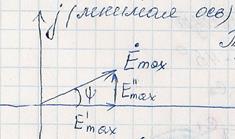 j (мнимая ось)
Ėmax
ψ
E''max
E'max